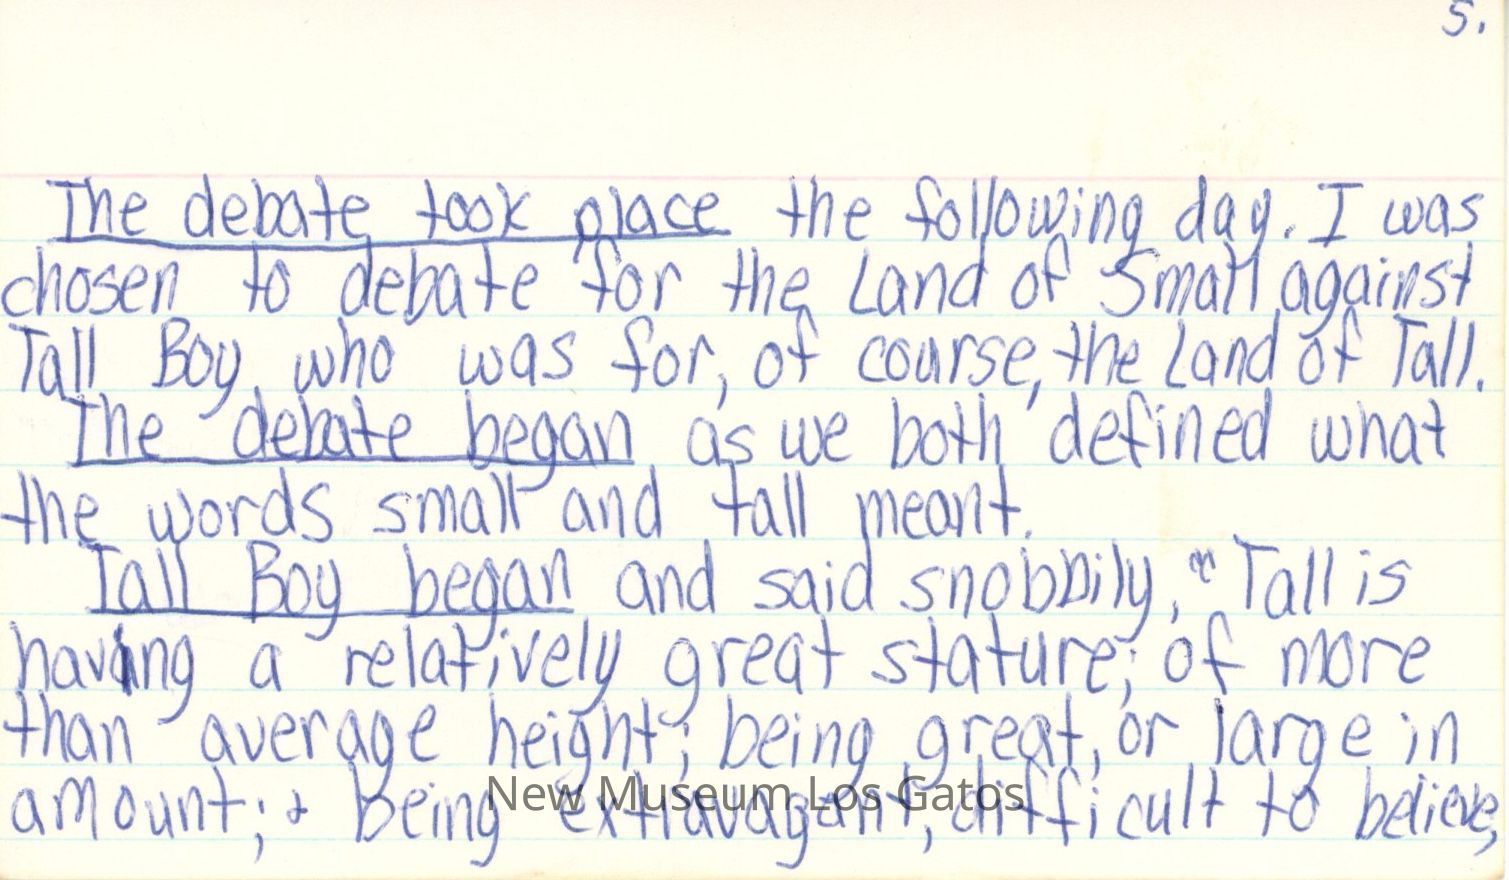 5.
The debate took place the following day. I was
chosen to debate for the Land of Small against
Tall Boy, who was for, of course, the Land of Tall.
The debate began as we both defined what
the words small and tall meant.
Tall Boy began and said snobbily, "Tall is
having a relatively great stature; of more
than average height; being great, or large in
amount; & being extravagant, difficult to believe,
New Museum Los Gatos